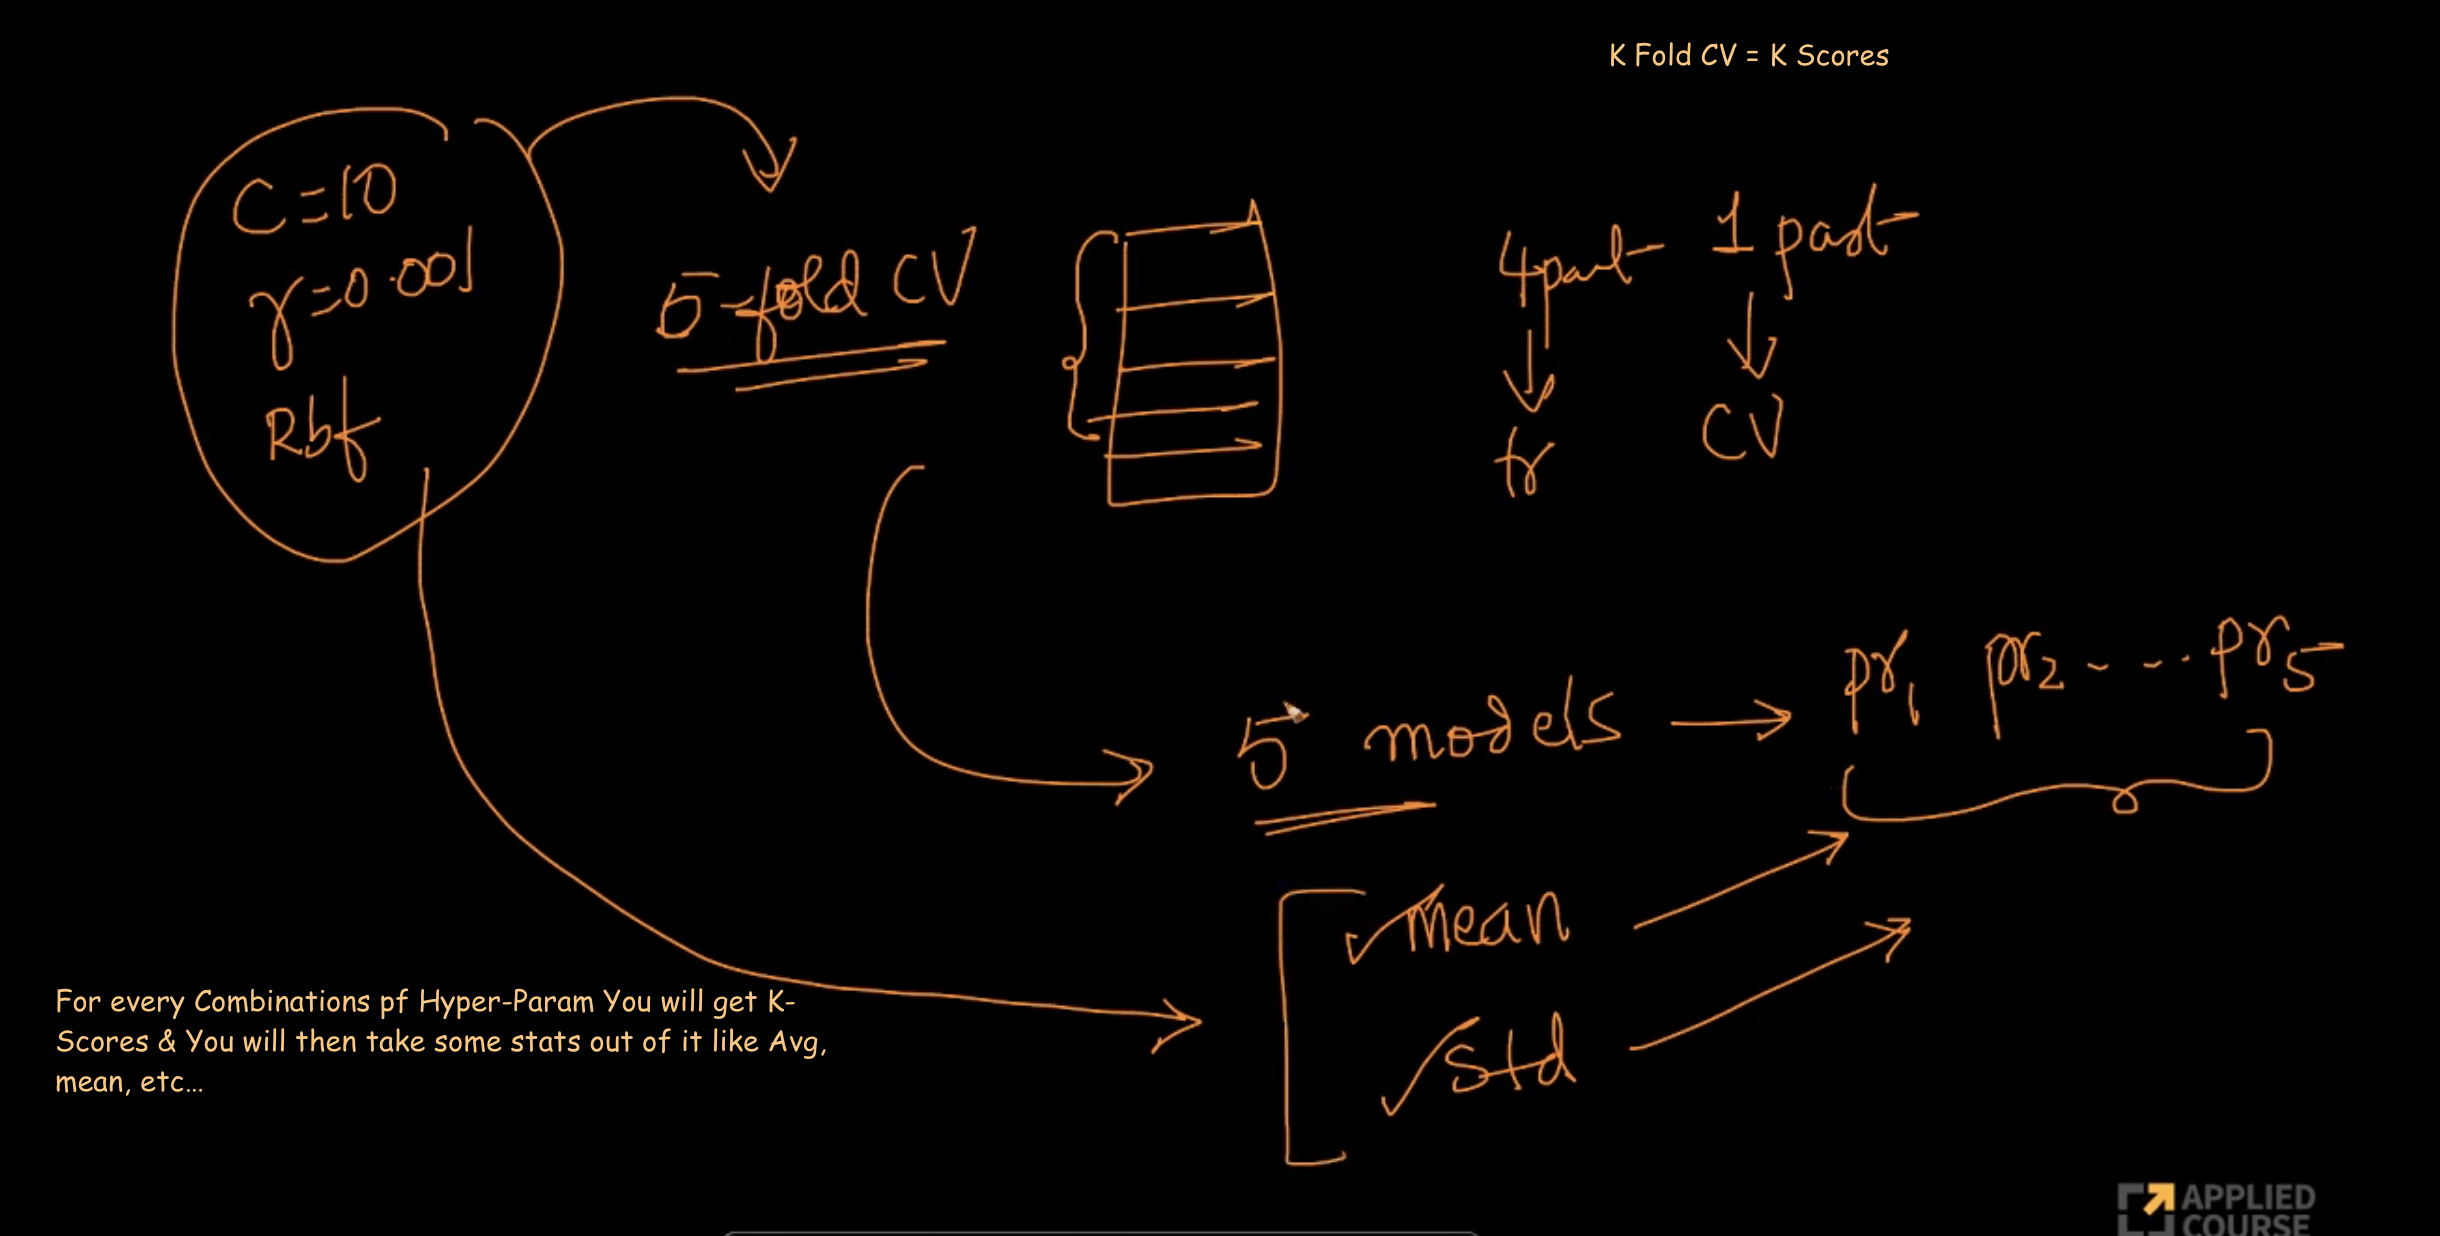 K Fold CV = K Scores
C=10
γ=0.001
Rbf
5-fold CV
4 part 1 part
tr CV
5 models → pr1 pr2 - - - pr5
mean
std
For every Combinations pf Hyper-Param You will get K-
Scores & You will then take some stats out of it like Avg,
mean, etc...
APPLIED
COURSE